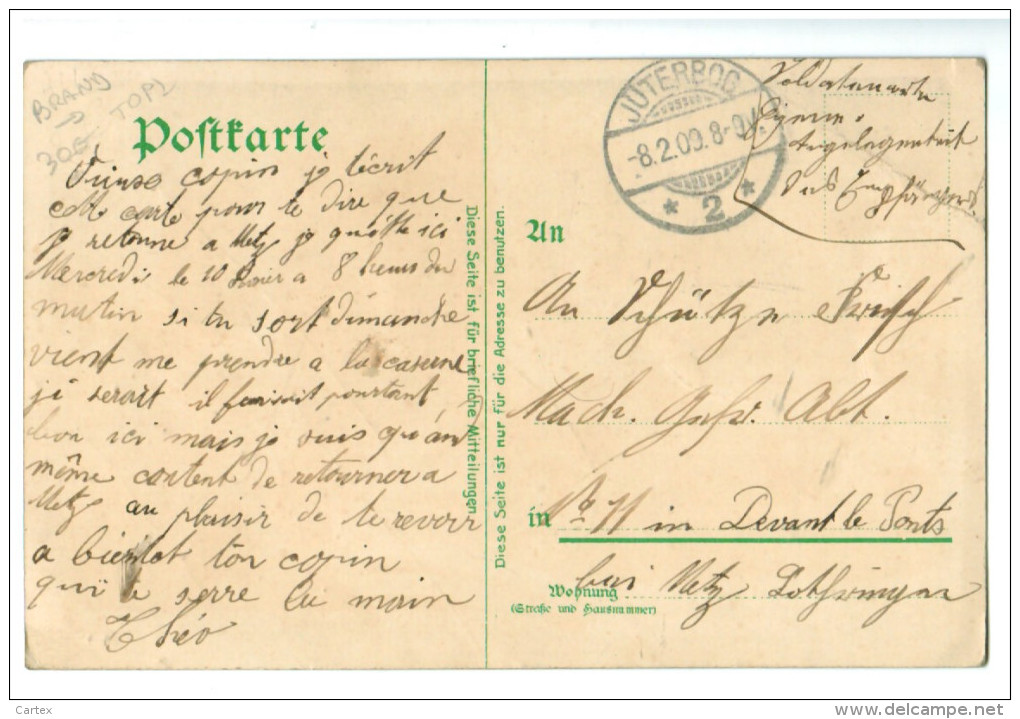 BRAND
P
30G TOP2
Postkarte
copin je técrit
cette carte pour te dire que
je retourne a Metz je quitte ici
Mercredis le 10 a 8 heurs du
matin si tu sort dimanche
vient me prendre a la caserne
ji serait il faisait pourtant
bon ici mais je suis quand
même content de retourner a
Metz au plaisir de te revoir
a bientot ton copin
qui te serre la main
Théo
Diese Seite ist für briefliche Mitteilungen
Diese Seite ist nur für die Adresse zu benutzen.
JÜTERBOG
-8.2.09.8-9V.
* 2 *
Soldatenkarte
Eigene
Angelegenheit
des Empfängers
An
An Schütze Frisch
Mach. Gew. Abt.
in No 11 in Devant le Ponts
bei Metz Lothringen
Wohnung
(Straße und Hausnummer)
Cartex
delcampe.net